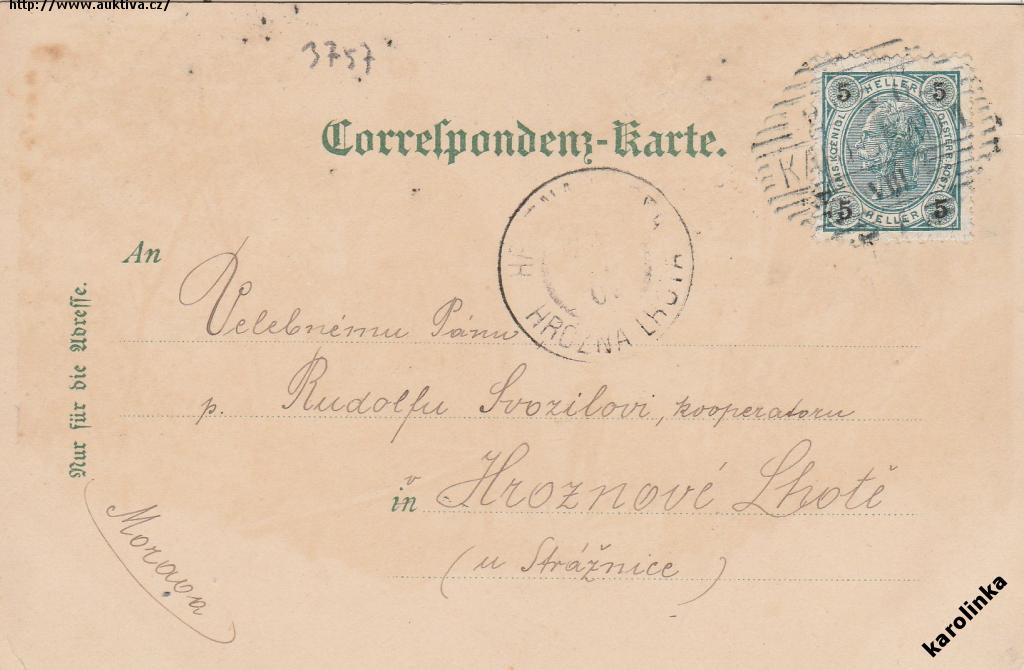 http://www.auktiva.cz/
3757
Correspondenz-Karte.
5 HELLER 5
KAIS. KOENIGL. OESTERR. POST
5 HELLER 5
KA
VIII
HROZNA LHOTA
An
Velebnému Pánu
p. Rudolfu Svozilovi, kooperatoru
v
in Hroznové Lhotě
(u Strážnice)
Nur für die Adresse.
Morava
karolinka